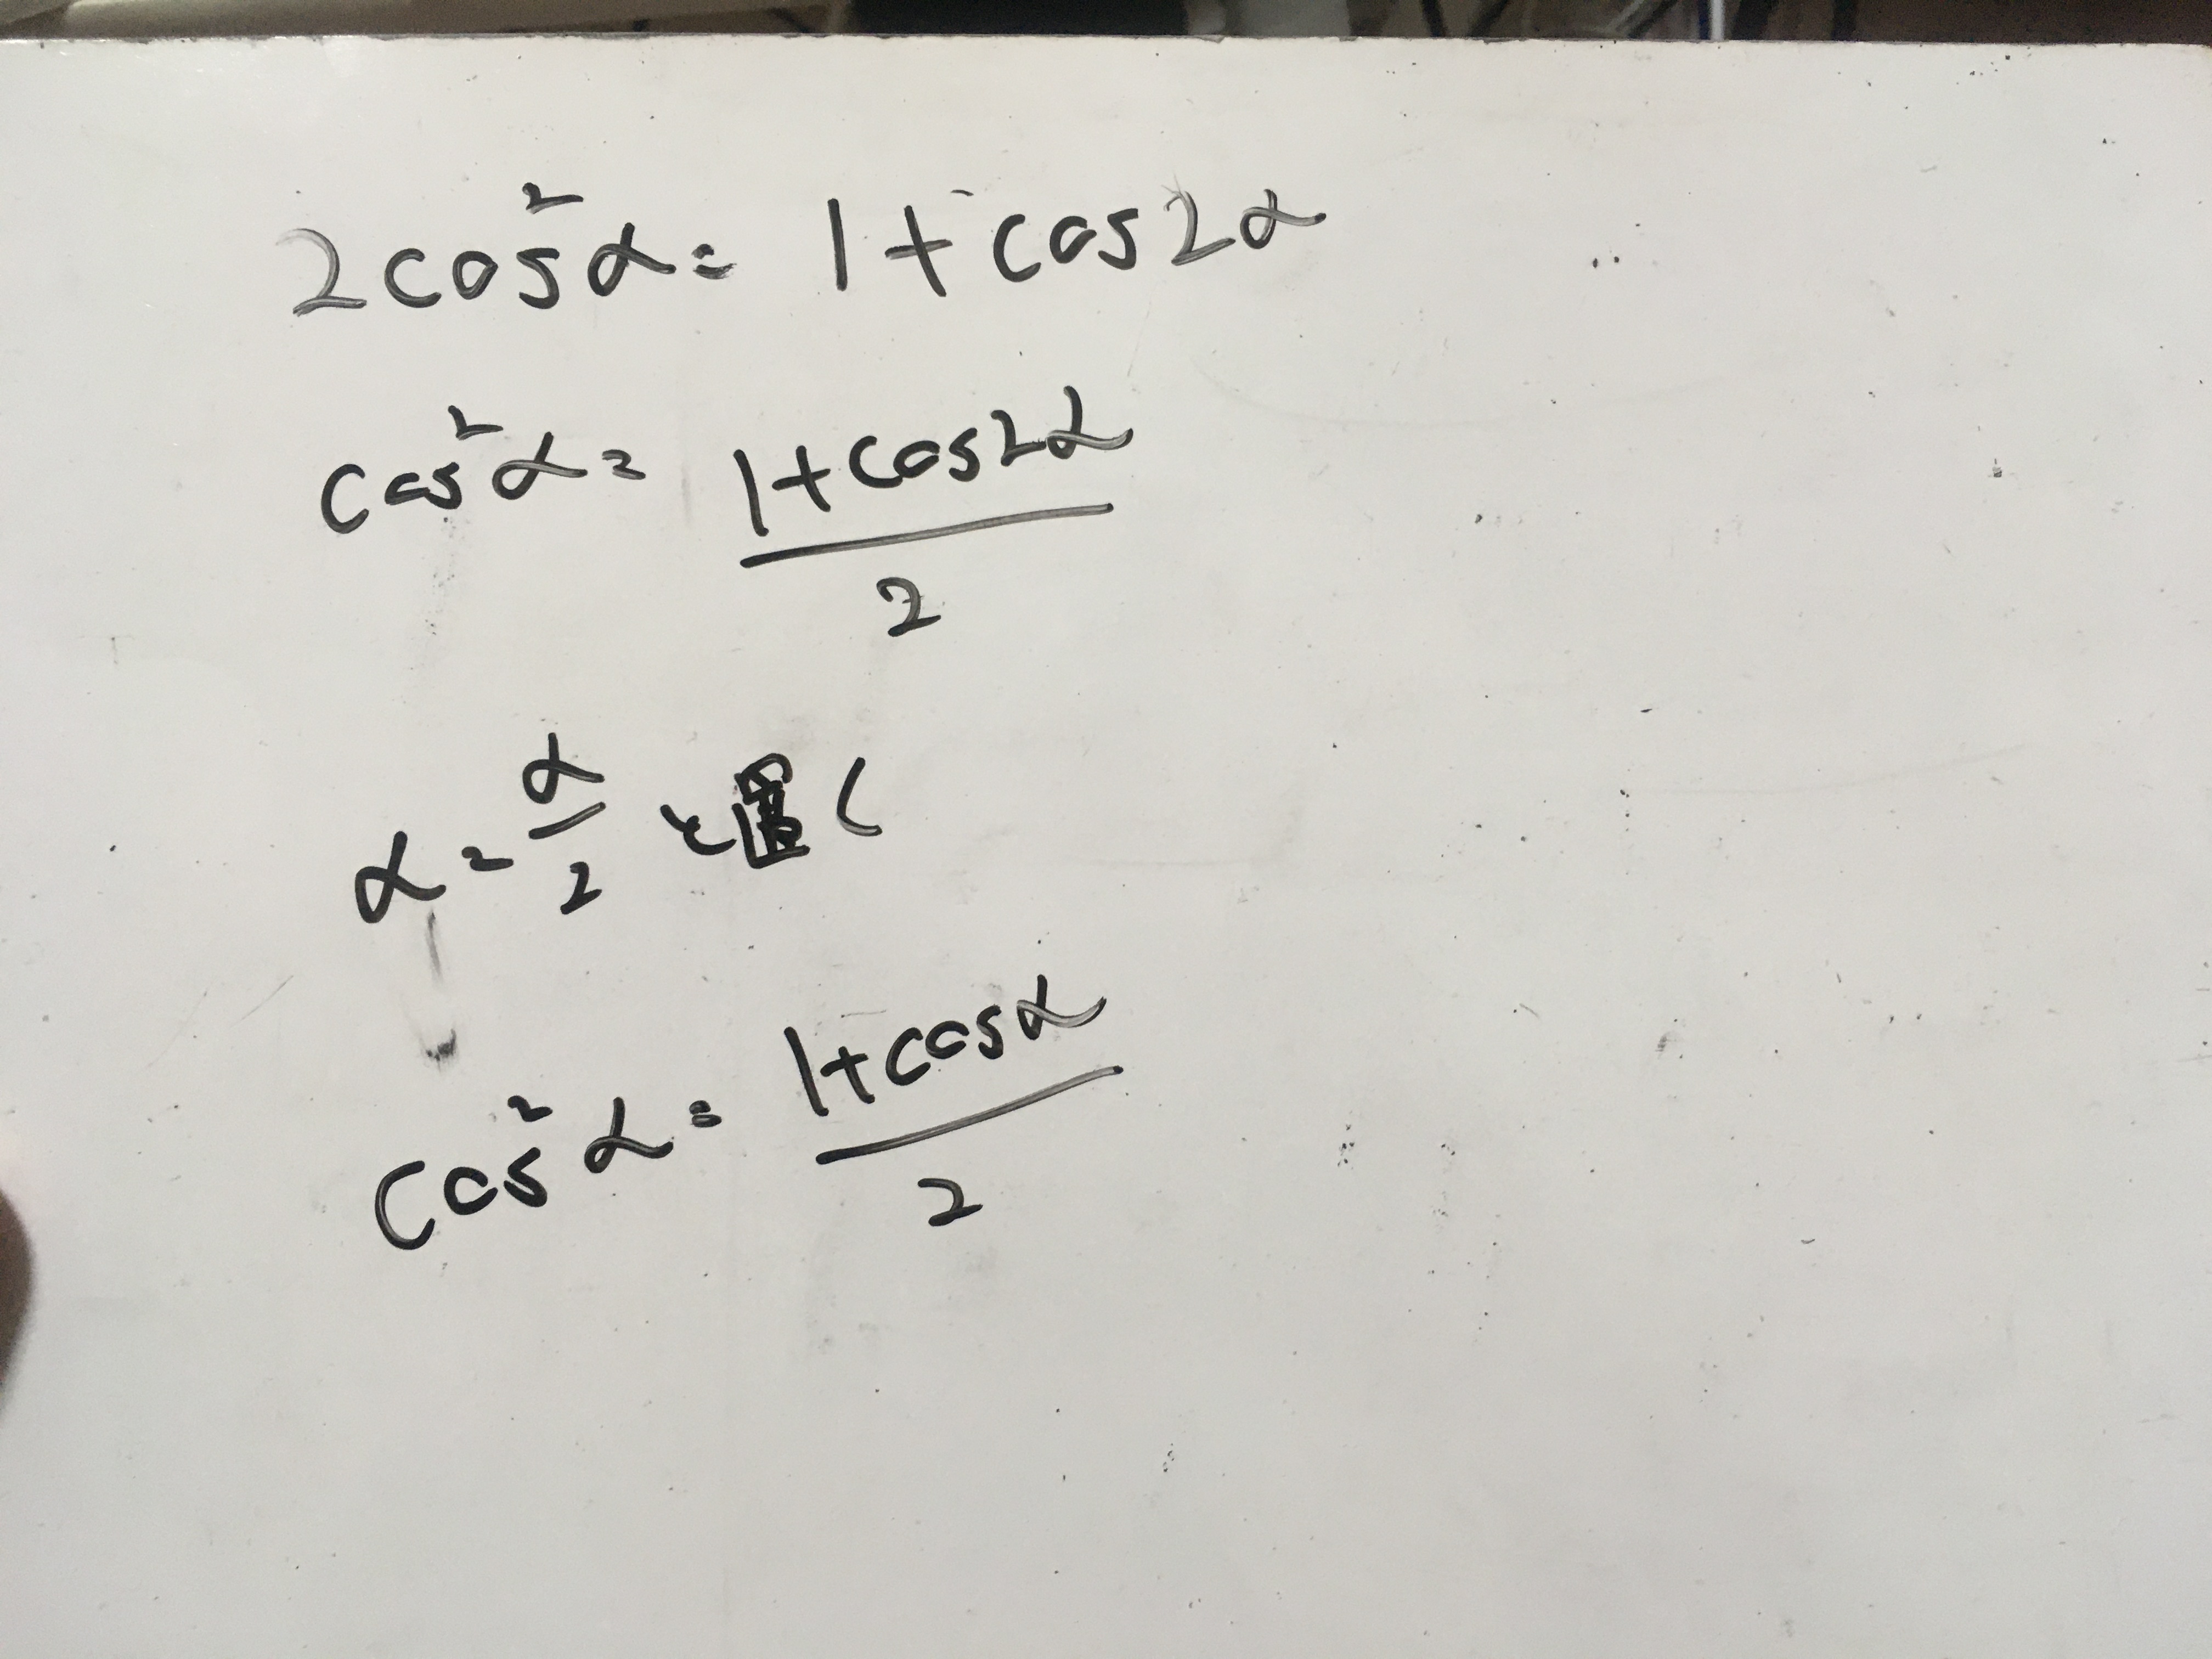 2cos²α = 1 + cos2α
cos²α = (1 + cos2α)/2
α = α/2 と置く
cos²α = (1 + cosα)/2